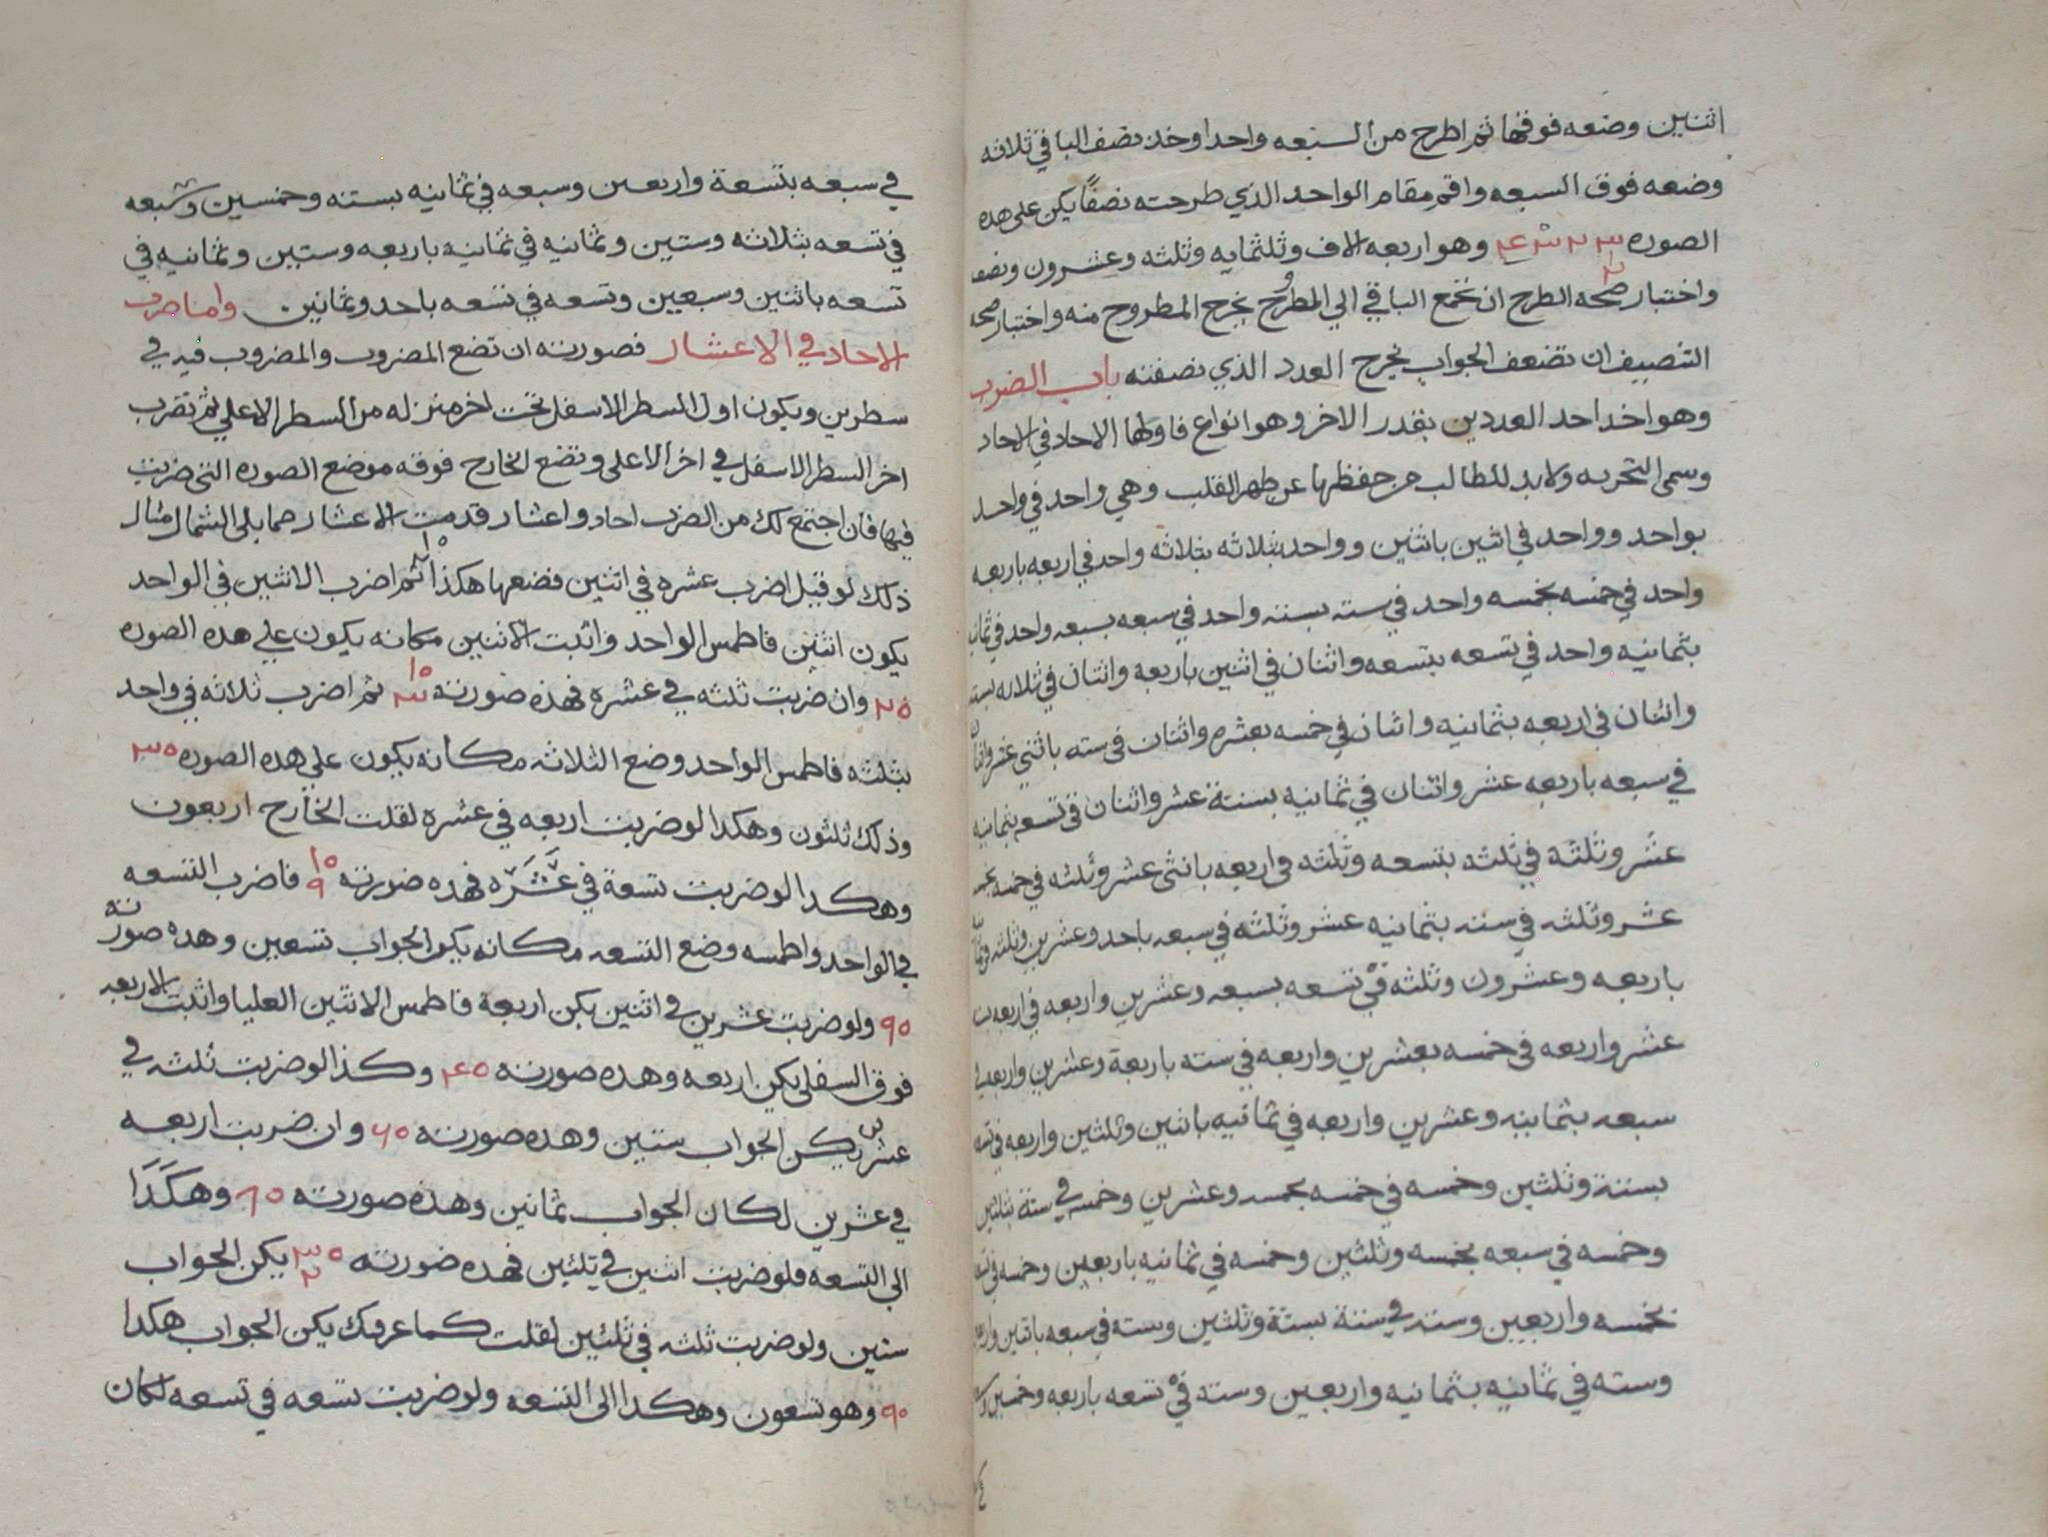 اثنين وضعه فوقها ثم اطرح من السبعه واحدا وخذ نصف الباقي ثلاثه
وضعه فوق السبعه واقم مقام الواحد الذي طرحته نصفًا يكن على هذه
الصوره وهو اربعه الاف وثلثمايه وثلثه وعشرون ونصف
واختبار صحه الطرح ان تجمع الباقي الي المطروح يخرج المطروح منه واختبار صحه
التنصيف ان تضعف الجواب يخرج العدد الذي نصفته باب الضرب
وهو اخذ احد العددين بقدر الاخر وهو انواع فاولها الاحاد في الاحاد
وسمى التحريه ولا بد للطالب من حفظها عن طهر القلب وهي واحد في واحد
بواحد وواحد في اثنين باثنين وواحد بثلاثه بثلاثه واحد في اربعه باربعه
واحد في خمسه بخمسه واحد في سته بسته واحد في سبعه بسبعه واحد في ثمانيه
بثمانيه واحد في تسعه بتسعه واثنان في اثنين باربعه واثنان في ثلاثه بسته
واثنان في اربعه بثمانيه واثنان في خمسه بعشره واثنان في سته باثني عشر واثنان
في سبعه باربعه عشر واثنان في ثمانيه بستة عشر واثنان في تسعه بثمانيه
عشر وثلثة في ثلثه بتسعه وثلثه في اربعه باثنى عشر وثلثه في خمسه بخمسه
عشر وثلثه في سته بثمانيه عشر وثلثه في سبعه باحد وعشرين وثلثه في ثمانيه
باربعه وعشرون وثلثه في تسعه بسبعه وعشرين واربعه في اربعه بسته
عشر واربعه في خمسه بعشرين واربعه في سته باربعة وعشرين واربعه في
سبعه بثمانيه وعشرين واربعه في ثمانيه باثنين وثلثين واربعه في تسعه
بستة وثلثين وخمسه في خمسه بخمسه وعشرين وخمسه في ستة بثلثين
وخمسه في سبعه بخمسه وثلثين وخمسه في ثمانيه باربعين وخمسه في تسعه
بخمسه واربعين وسته في ستة بستة وثلثين وسته في سبعه باثنين واربعين
وسته في ثمانيه بثمانيه واربعين وسته في تسعه باربعه وخمسين وسبعه
في سبعه بتسعة واربعين وسبعه في ثمانيه بسته وخمسين وسبعه
في تسعه بثلاثه وستين وثمانيه في ثمانيه باربعه وستين وثمانيه في
تسعه باثنين وسبعين وتسعه في تسعه باحد وثمانين واما ضرب
الاحاد في الاعشار فصورته ان تضع المضروب والمضروب فيه في
سطرين ويكون اول السطر الاسفل تحت اخر منزله من السطر الاعلي ثم تضرب
اخر السطر الاسفل في اخر الاعلى وتضع الخارج فوقه موضع الصوره التى ضربت
فيها فان اجتمع لك من الضرب احاد واعشار قدمت الاعشار مما يلي الشمال مثال
ذلك لو قيل اضرب عشره في اثنين فضعها هكذا ١٥ ٢ ثم اضرب الاثنين في الواحد
يكون اثنين فاطمس الواحد واثبت الاثنين مكانه يكون علي هذه الصوره
٢٥ وان ضربت ثلثه في عشره فهذه صورته ١٥ ٣ ثم اضرب ثلاثه في واحد
بثلثه فاطمس الواحد وضع الثلاثه مكانه يكون علي هذه الصوره ٣٥
وذلك ثلثون وهكذا لو ضربت اربعه في عشره لقلت الخارج اربعون
وهكذا لو ضربت تسعة في عَشَرَه فهذه صورته ١٥ ٩ فاضرب التسعه
في الواحد واطمسه وضع التسعه مكانه يكن الجواب تسعين وهذه صورته
٩٥ ولو ضربت عشرين في اثنين يكن اربعة فاطمس الاثنين العليا واثبت الاربعه
فوق السفلى يكن اربعه وهذه صورته ٤٥ وكذا لو ضربت ثلثه في
عشرين يكن الجواب ستين وهذه صورته ٦٥ وان ضربت اربعه
في عشرين لكان الجواب ثمانين وهذه صورته ٨٥ وهكَذَا
الى التسعه فلو ضربت اثنين في ثلثين فهذه صورته ٣٥ ٢ يكن الجواب
ستين ولو ضربت ثلثه في ثلثين لقلت كما عرفتك يكن الجواب هكذا
٩٥ وهو تسعون وهكذا الى التسعه ولو ضربت تسعه في تسعه لكان